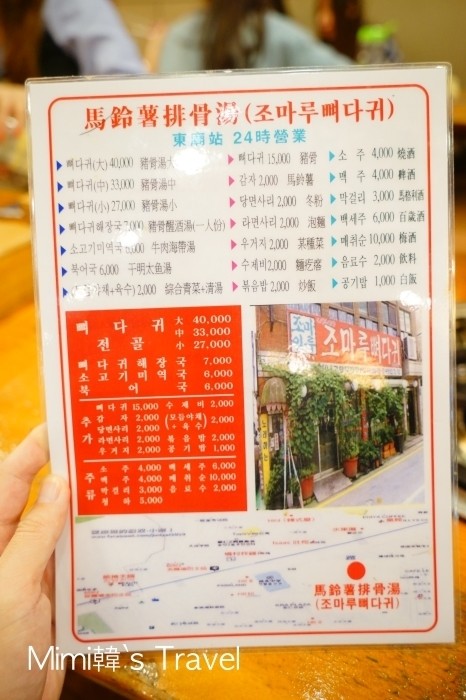 馬鈴薯排骨湯(조마루뼈다귀)
東廟站 24時營業
뼈다귀(大) 40,000 豬骨湯
뼈다귀(中) 33,000 豬骨湯中
뼈다귀(小) 27,000 豬骨湯小
뼈다귀해장국 7,000 豬骨醒酒湯(一人份)
소고기미역국 6,000 牛肉海帶湯
북어국 6,000 干明太魚湯
+육수) 2,000 綜合青菜+清湯
뼈다귀 15,000 豬骨
감자 2,000 馬鈴薯
당면사리 2,000 冬粉
라면사리 2,000 泡麵
우거지 2,000 某種菜
수제비 2,000 麵疙瘩
볶음밥 2,000 炒飯
소 주 4,000 燒酒
맥 주 4,000 啤酒
막걸리 3,000 馬格利酒
백세주 6,000 百歲酒
매취순 10,000 梅酒
음료수 2,000 飲料
공기밥 1,000 白飯
뼈다귀 전골
大 40,000
中 33,000
小 27,000
뼈다귀해장국 7,000
소고기미역국 6,000
북어국 6,000
추가
뼈다귀 15,000 수제비 2,000
감자 2,000 (모듬야채+육수) 2,000
당면사리 2,000
라면사리 2,000 볶음밥 2,000
우거지 2,000 공기밥 1,000
주류
소주 4,000 백세주 6,000
맥주 4,000 매취순 10,000
막걸리 3,000 음료수 2,000
청하 5,000
조마루뼈다귀
馬鈴薯排骨湯
(조마루뼈다귀)
Mimi韓`s Travel